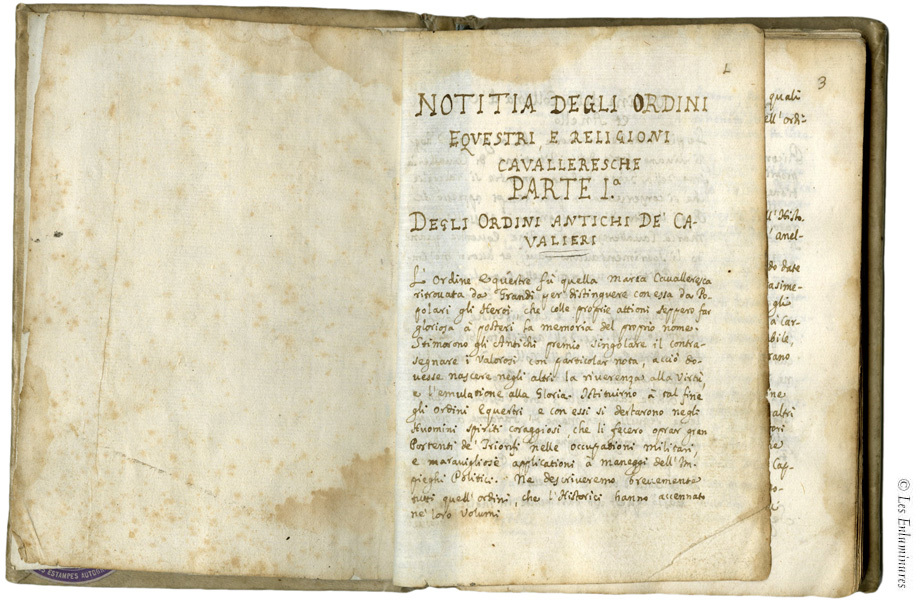 1
NOTITIA DEGLI ORDINI
EQVESTRI, E RELIGIONI
CAVALLERESCHE
PARTE I.ª
DEGLI ORDINI ANTICHI DE' CA-
VALIERI
L' Ordine Equestre fù quella marca Cavalleresca
ritrovata da Grandi per distinguere con essa da Po-
polari gli Heroi che colle proprie attioni seppero far
gloriosa à posteri la memoria del proprio nome.
Stimorono gli Antichi premio singolare il contra-
segnare i valorosi con particolar nota, acciò do-
vesse nascere negli altri la riverenza alla Virtù,
e l'emulatione alla Gloria. Istituirno à tal fine
gli ordini Equestri, e con essi si destarono negli
Huomini spiriti coraggiosi, che li fecero oprar gran
Portenti de' Trionfi nelle occupationi militari,
e maravigliose applicationi à maneggi dell' Im-
pieghi Politici. Ne descriveremo brevemente
tutti quell' ordini, che l'Historici hanno accennato
ne' loro Volumi
3
quali
ell' ordi-
ll' Histo.
l' anel-
do date
asime-
gli
à Car-
bile,
rano
ne
altri
ori
Cap-
ESTAMPES AUTOGR
© Les Enluminures